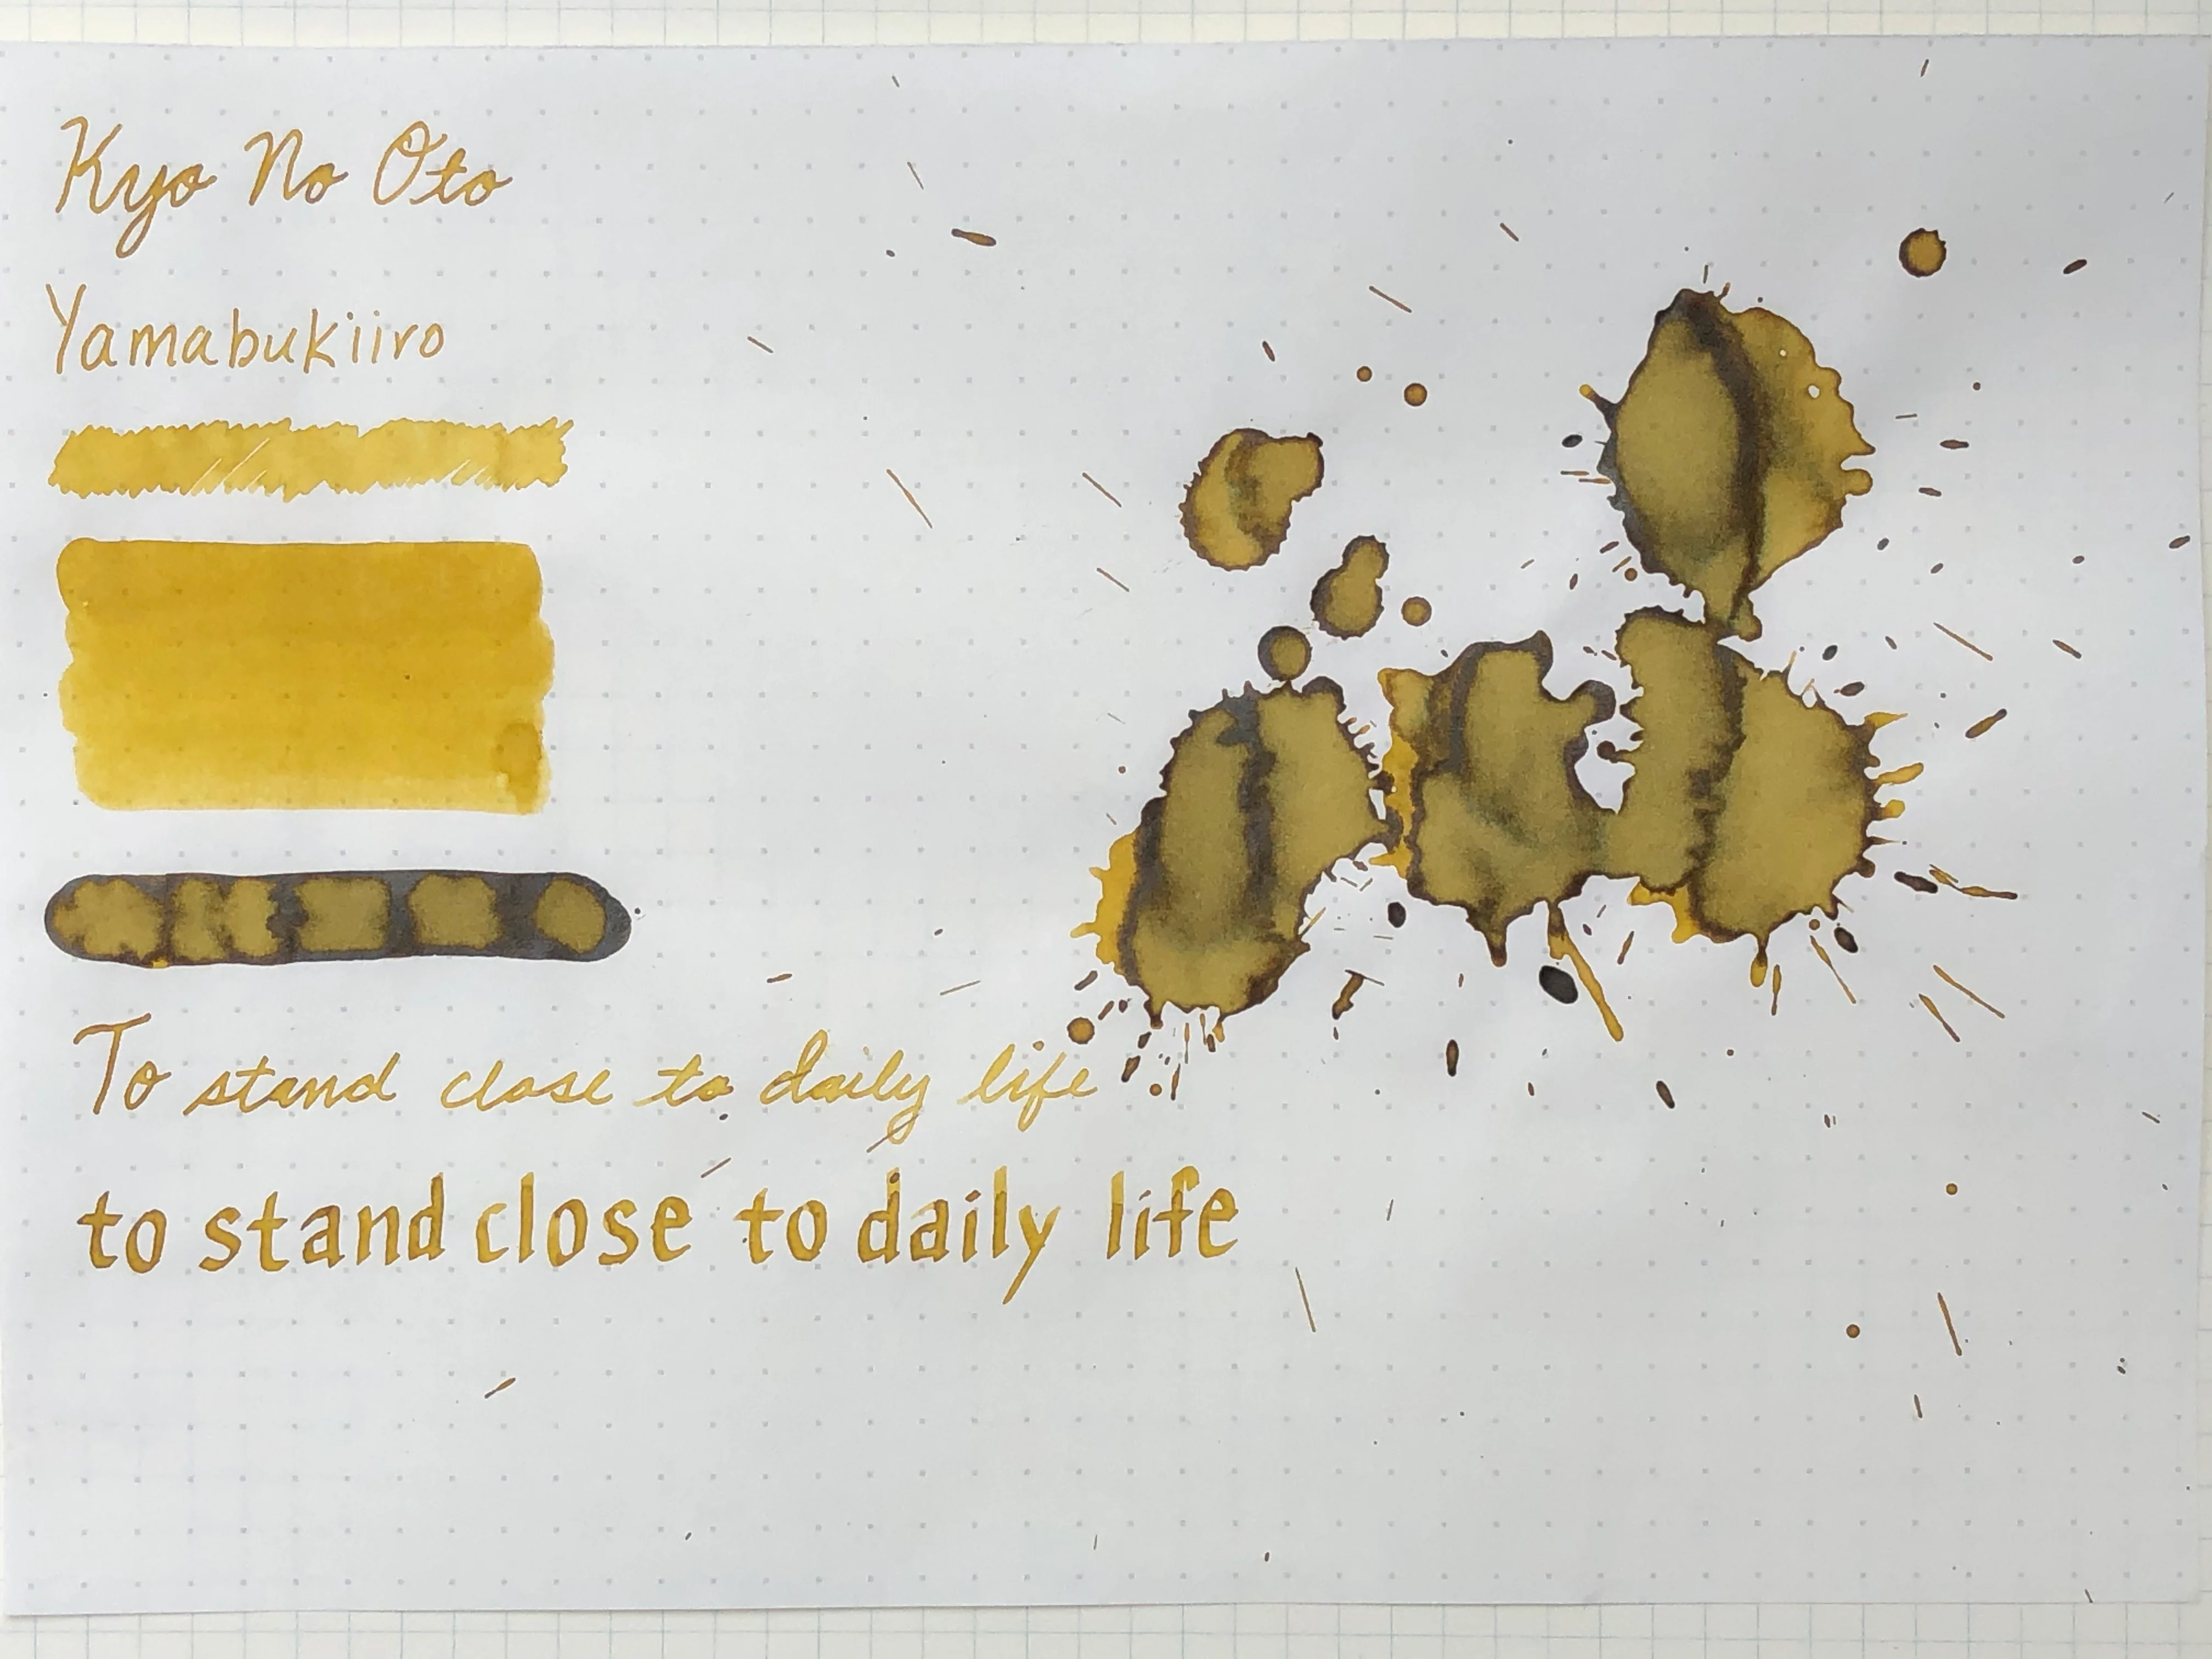 Kyo No Oto
Yamabukiiro
To stand close to daily life
to stand close to daily life